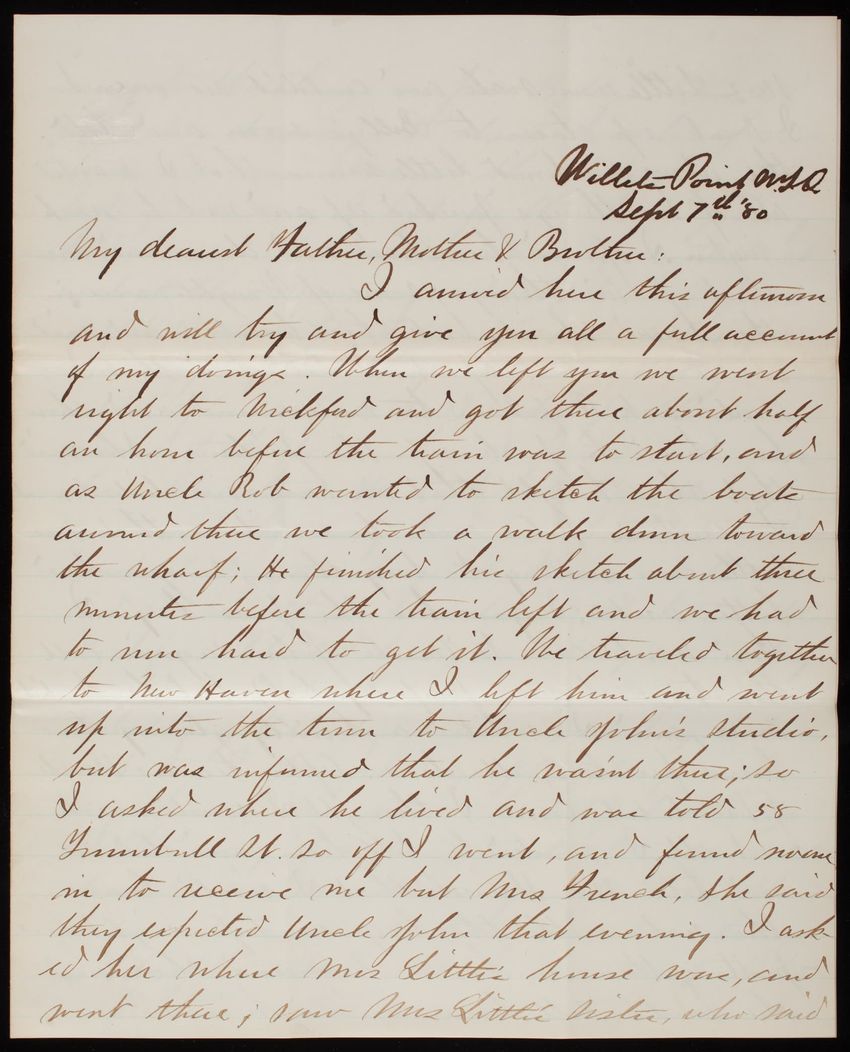 Willets Point N.Y.
Sept 7th '80
My dearest Father, Mother & Brother:
I arrived here this afternoon
and will try and give you all a full account
of my doings. When we left you we went
right to Wickford and got there about half
an hour before the train was to start, and
as Uncle Rob wanted to sketch the boats
around there we took a walk down toward
the wharf; He finished his sketch about three
minutes before the train left and we had
to run hard to get it. We traveled together
to New Haven where I left him and went
up into the town to Uncle John's studio,
but was informed that he wasnt there; so
I asked where he lived and was told 58
Trumbull St. so off I went, and found no one
in to receive me but Mrs French, she said
they expected Uncle John that evening. I ask-
ed her where Mrs Little's house was, and
went there; saw Mrs Little's sister, who said